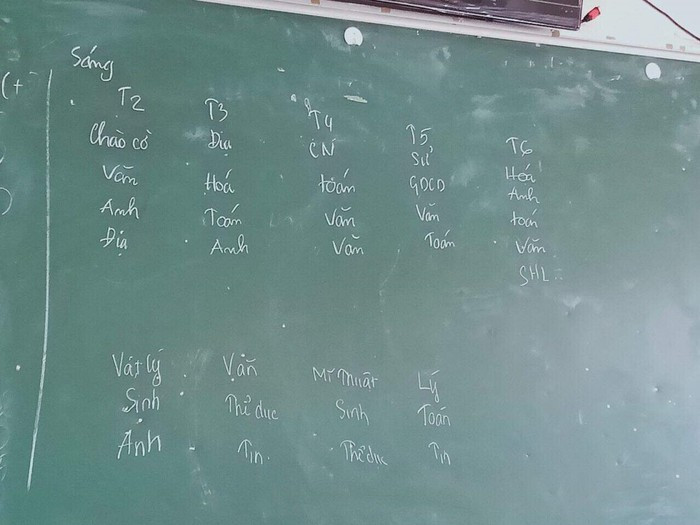 Sáng
T2 T3 T4 T5 T6
Chào cờ Địa CN Sử Hoá
Văn Hoá toán GDCD Anh
Anh Toán Văn Văn toán
Địa Anh Văn Toán Văn
SHL
Vật lý Văn Mĩ thuật Lý
Sinh Thể dục Sinh Toán
Anh Tin Thể dục Tin